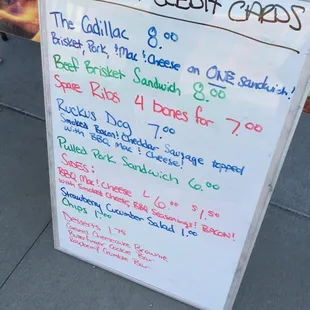 CREDIT CARDS
The Cadillac 8.00
Brisket, Pork, & Mac & Cheese on ONE sandwich!
Beef Brisket Sandwich 8.00
Spare Ribs 4 bones for 7.00
Ruckus Dog 7.00
Smoked Bacon & Cheddar Sausage topped
with BBQ Mac & Cheese!
Pulled Pork Sandwich 6.00
SIDES:
BBQ Mac & Cheese L 6.00 $1.50
with Smoked Cheese, BBQ Seasonings & BACON!
Strawberry Cucumber Salad 1.00
Chips 1.00
Desserts 1.75
Cheesecake Brownie
Cookie Bar
Raspberry Crumble Bar